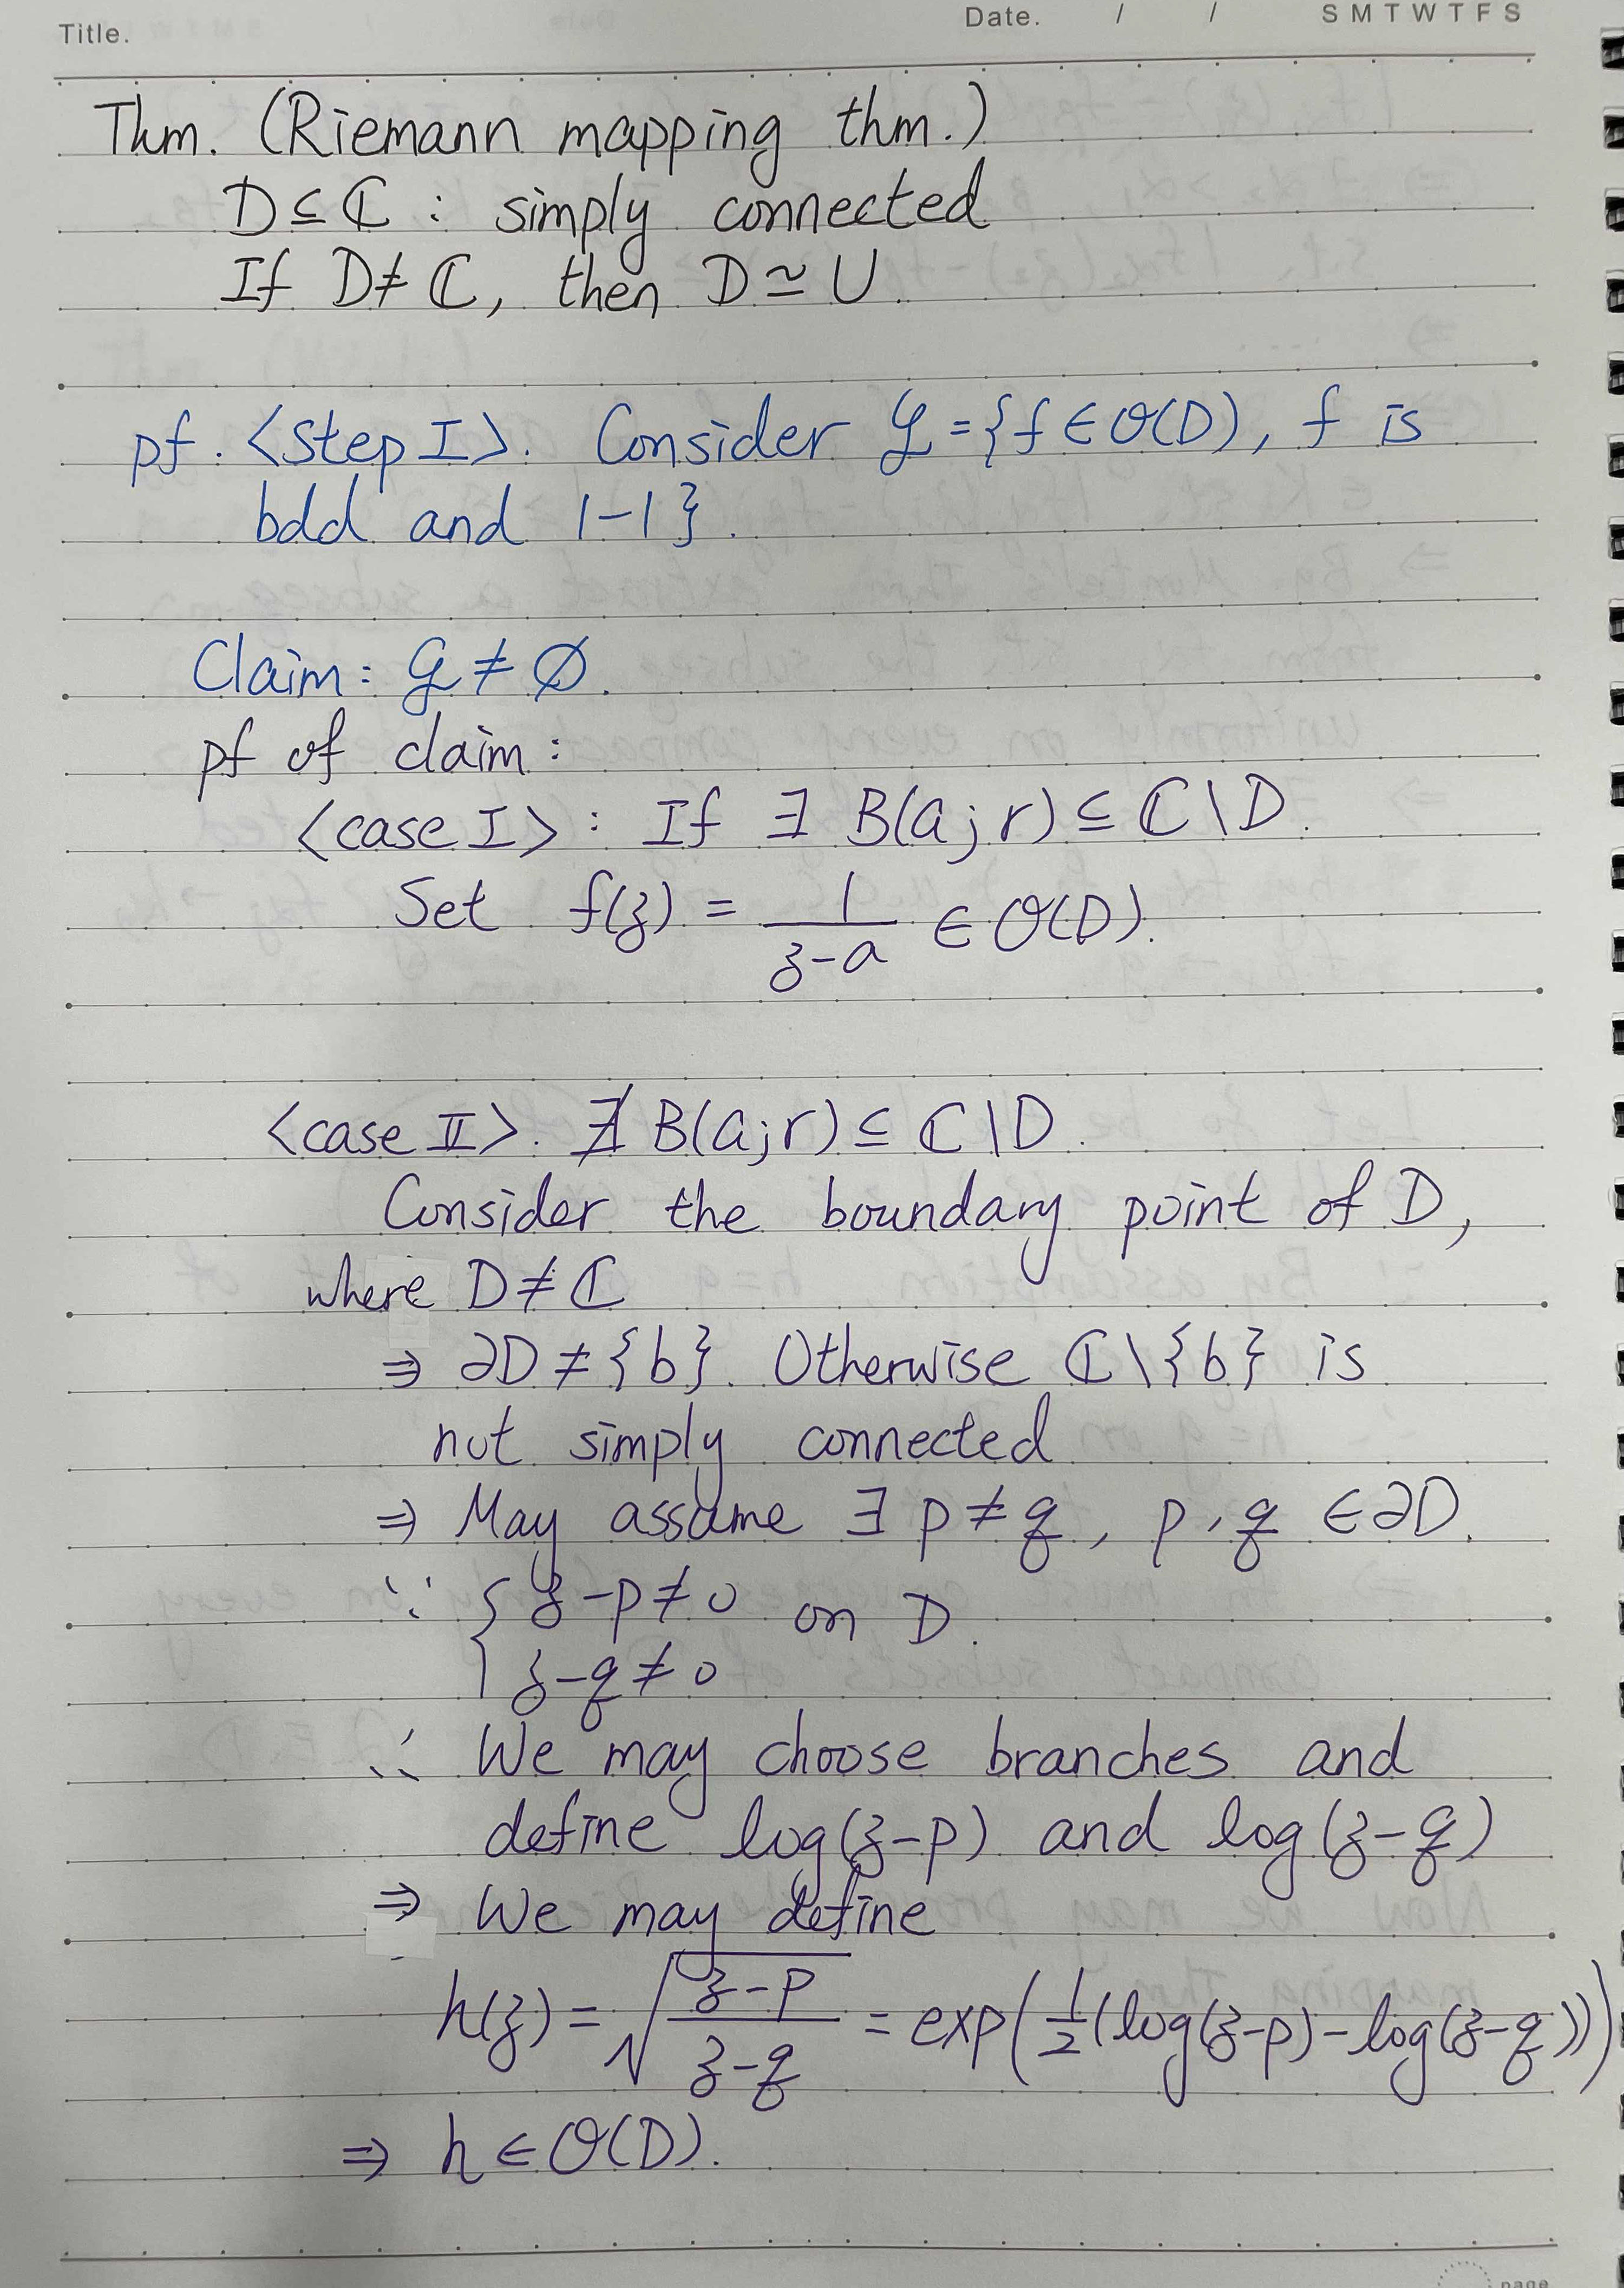 Title.
Date. / / S M T W T F S
Thm. (Riemann mapping thm.)
D ⊆ ℂ : simply connected
If D ≠ ℂ, then D ≃ U.
pf. <step I>. Consider 𝒢 = {f ∈ 𝒪(D), f is
bdd and 1-1}.
Claim: 𝒢 ≠ ∅.
pf of claim:
<case I>: If ∃ B(a; r) ⊆ ℂ \ D.
Set f(z) = 1/(z-a) ∈ 𝒪(D).
<case II>. ∄ B(a; r) ⊆ ℂ \ D.
Consider the boundary point of D,
where D ≠ ℂ
⇒ ∂D ≠ {b}. Otherwise ℂ \ {b} is
not simply connected
⇒ May assume ∃ p ≠ q, p, q ∈ ∂D.
∵ { z-p ≠ 0 on D.
z-q ≠ 0
∴ We may choose branches and
define log(z-p) and log(z-q)
⇒ We may define
h(z) = √((z-p)/(z-q)) = exp(1/2(log(z-p)-log(z-q)))
⇒ h ∈ 𝒪(D).
page